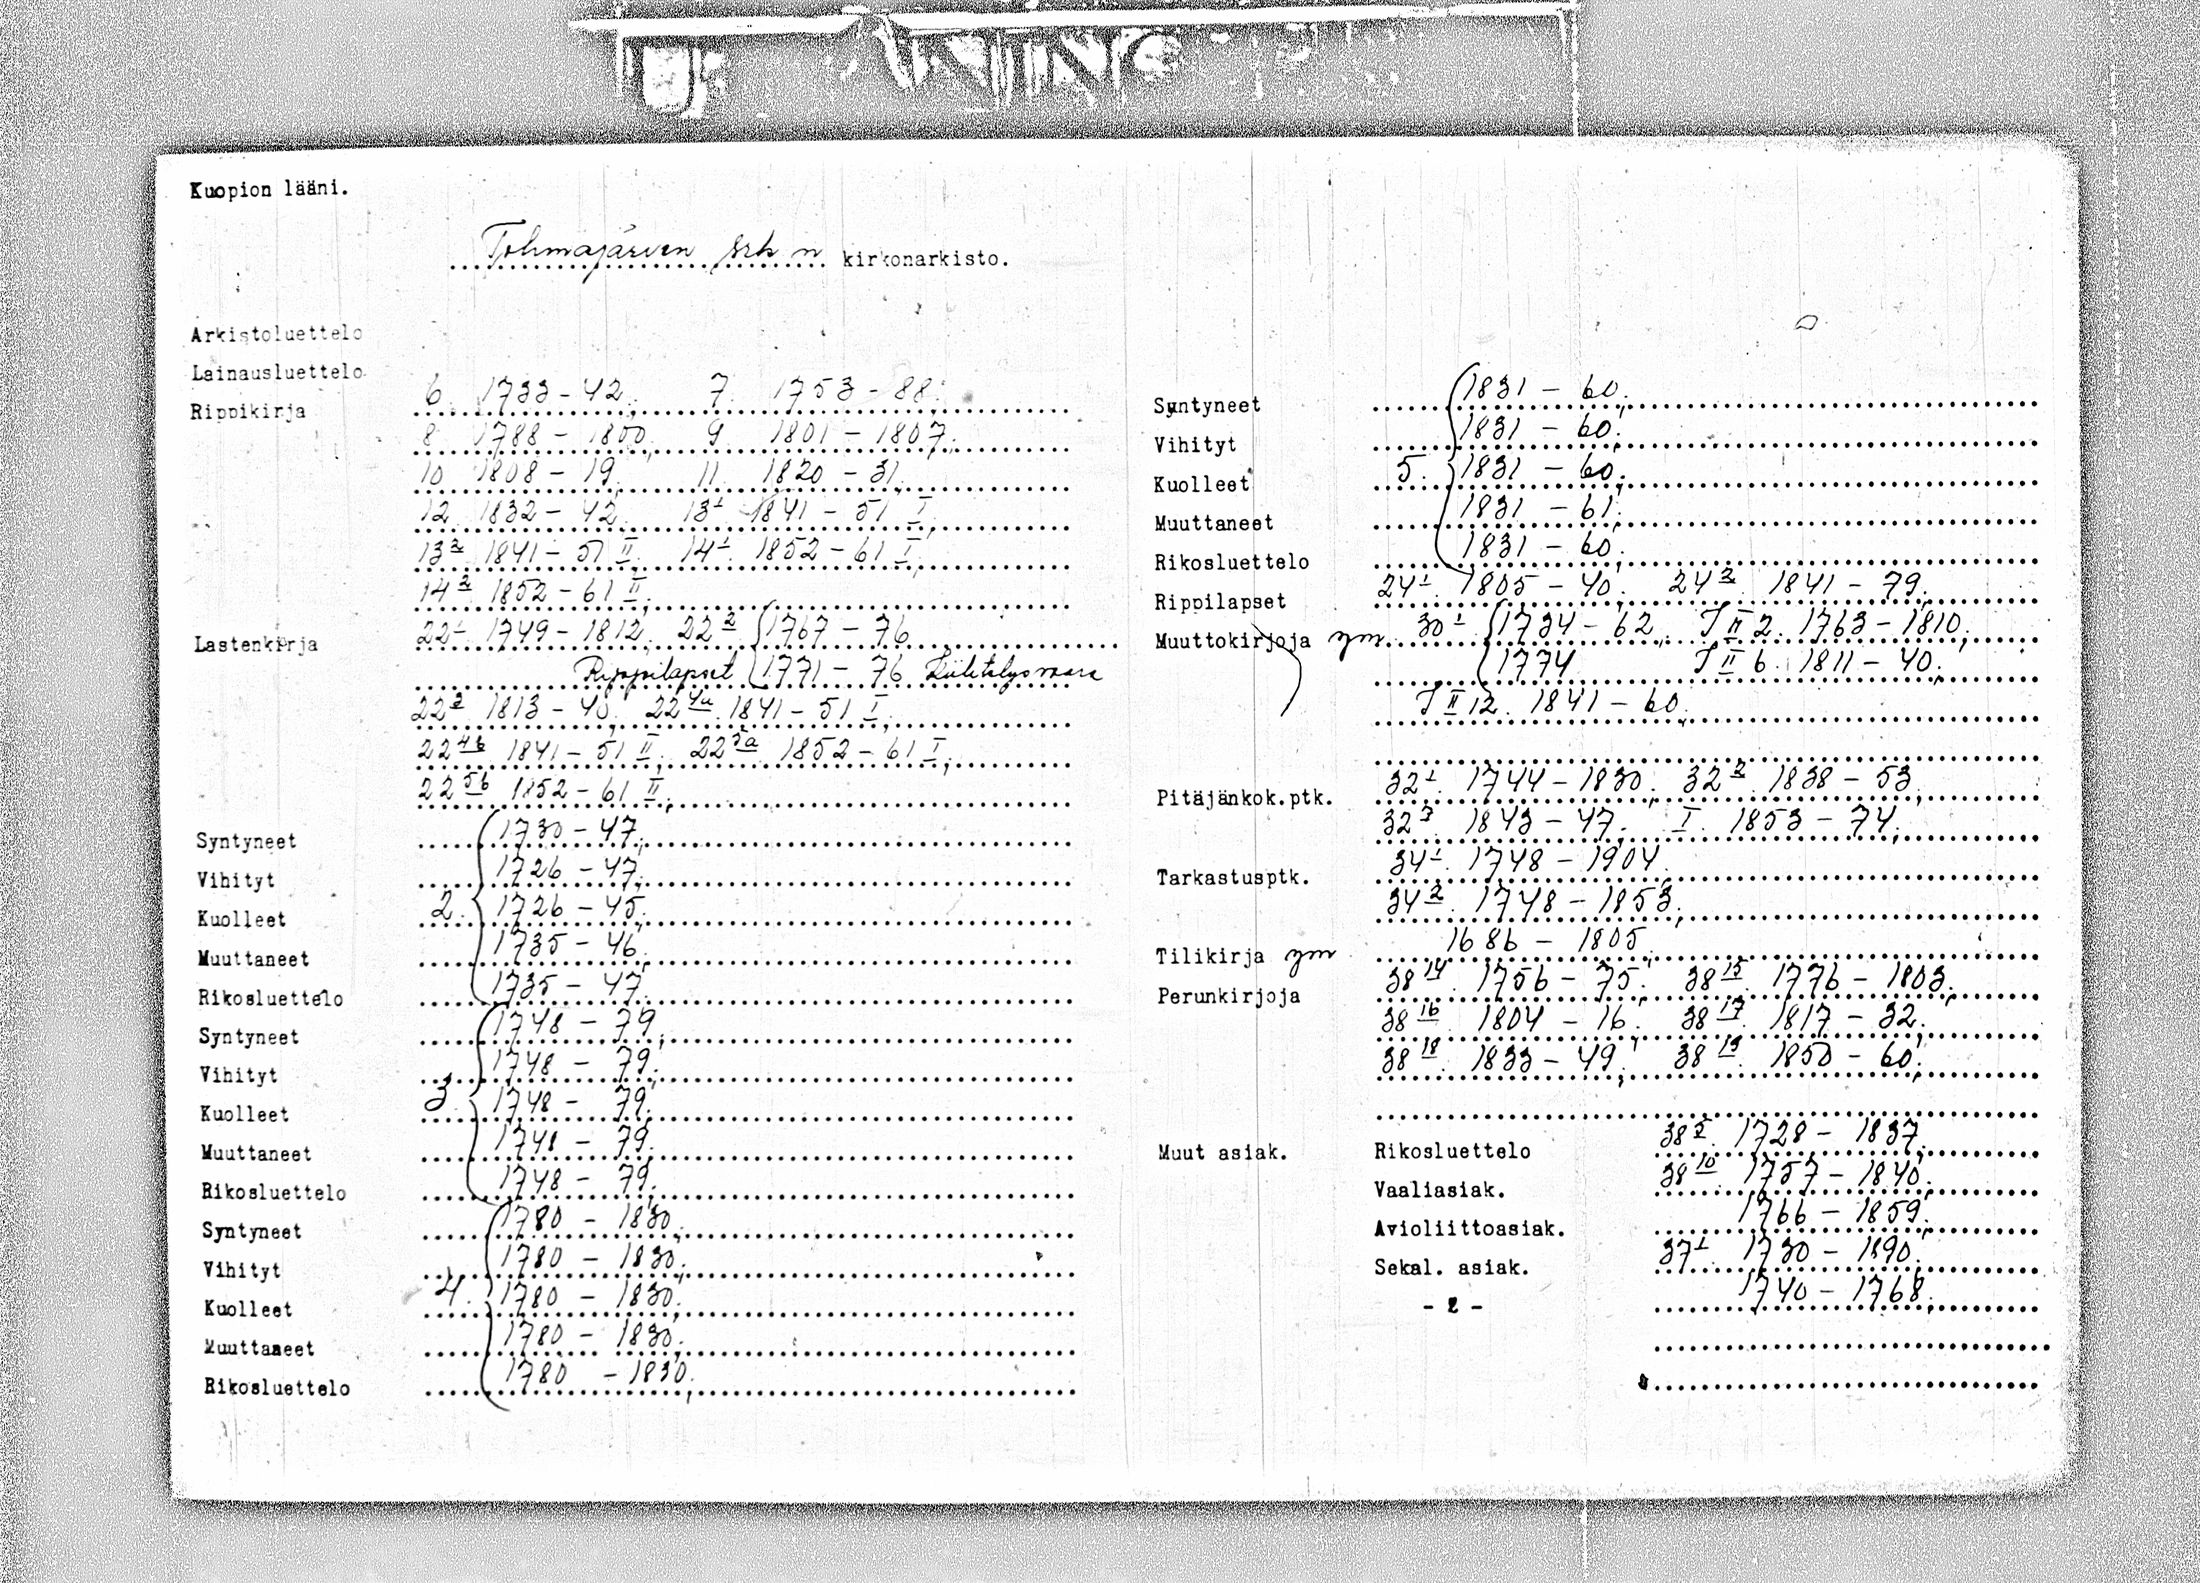 Kuopion lääni.
Tohmajärven srk n kirkonarkisto.
Arkistoluettelo
Lainausluettelo
Rippikirja 6. 1733-42; 7. 1753-88;
8. 1788-1800; 9. 1801-1807;
10 1808-19; 11. 1820-31;
12. 1832-42; 13¹ 1841-51 I;
13² 1841-51 II; 14¹. 1852-61 I;
14² 1852-61 II;
Lastenkirja 22¹. 1749-1812; 22² 1767-76
Rippilapset 1771-76 Kiihtelysvaara
22³ 1813-40; 22⁴ᵃ 1841-51 I;
22⁴ᵇ 1841-51 II; 22⁵ᵃ 1852-61 I;
22⁵ᵇ 1852-61 II;
Syntyneet 1730-47;
Vihityt 1726-47;
Kuolleet 2. 1726-45;
Muuttaneet 1735-46;
Rikosluettelo 1735-47;
Syntyneet 1748-79;
Vihityt 1748-79;
Kuolleet 3. 1748-79;
Muuttaneet 1748-79;
Rikosluettelo 1748-79;
Syntyneet 1780-1830;
Vihityt 1780-1830;
Kuolleet 4. 1780-1830;
Muuttaneet 1780-1830;
Rikosluettelo 1780-1830;
Syntyneet 1831-60;
Vihityt 1831-60;
Kuolleet 5. 1831-60;
Muuttaneet 1831-61;
Rikosluettelo 1831-60;
Rippilapset 24¹. 1805-40; 24². 1841-79;
Muuttokirjoja ym 30¹ 1734-62; I II 2. 1763-1810;
1774 I II 6. 1811-40;
I II 12. 1841-60;
Pitäjänkok.ptk. 32¹. 1744-1830; 32². 1838-53;
32³. 1843-47; I. 1853-74;
Tarkastusptk. 34¹. 1748-1904.
34². 1748-1853;
Tilikirja ym 1686-1805;
Perunkirjoja 38¹⁴. 1756-75; 38¹⁵. 1776-1803;
38¹⁶. 1804-16; 38¹⁷. 1817-32;
38¹⁸. 1833-49; 38¹⁹. 1850-60;
Muut asiak. Rikosluettelo 38⁵. 1728-1837;
Vaaliasiak. 38¹⁰. 1757-1840;
Avioliittoasiak. 1766-1859;
Sekal. asiak. 37¹. 1730-1890;
- 2 - 1740-1768;